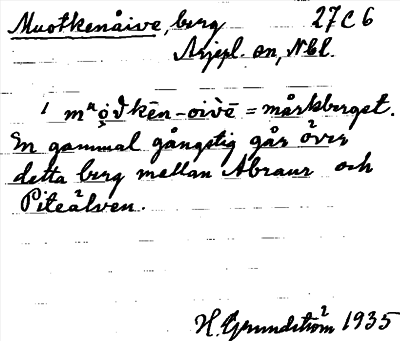 Muotkenåive, berg 27C6
Arjepl. sn, Nbl.
1 mᵘo̭ϑkēn-oivē = mårkberget.
En gammal gångstig går över
detta berg mellan Abraur och
Piteälven.
H. Grundström 1935